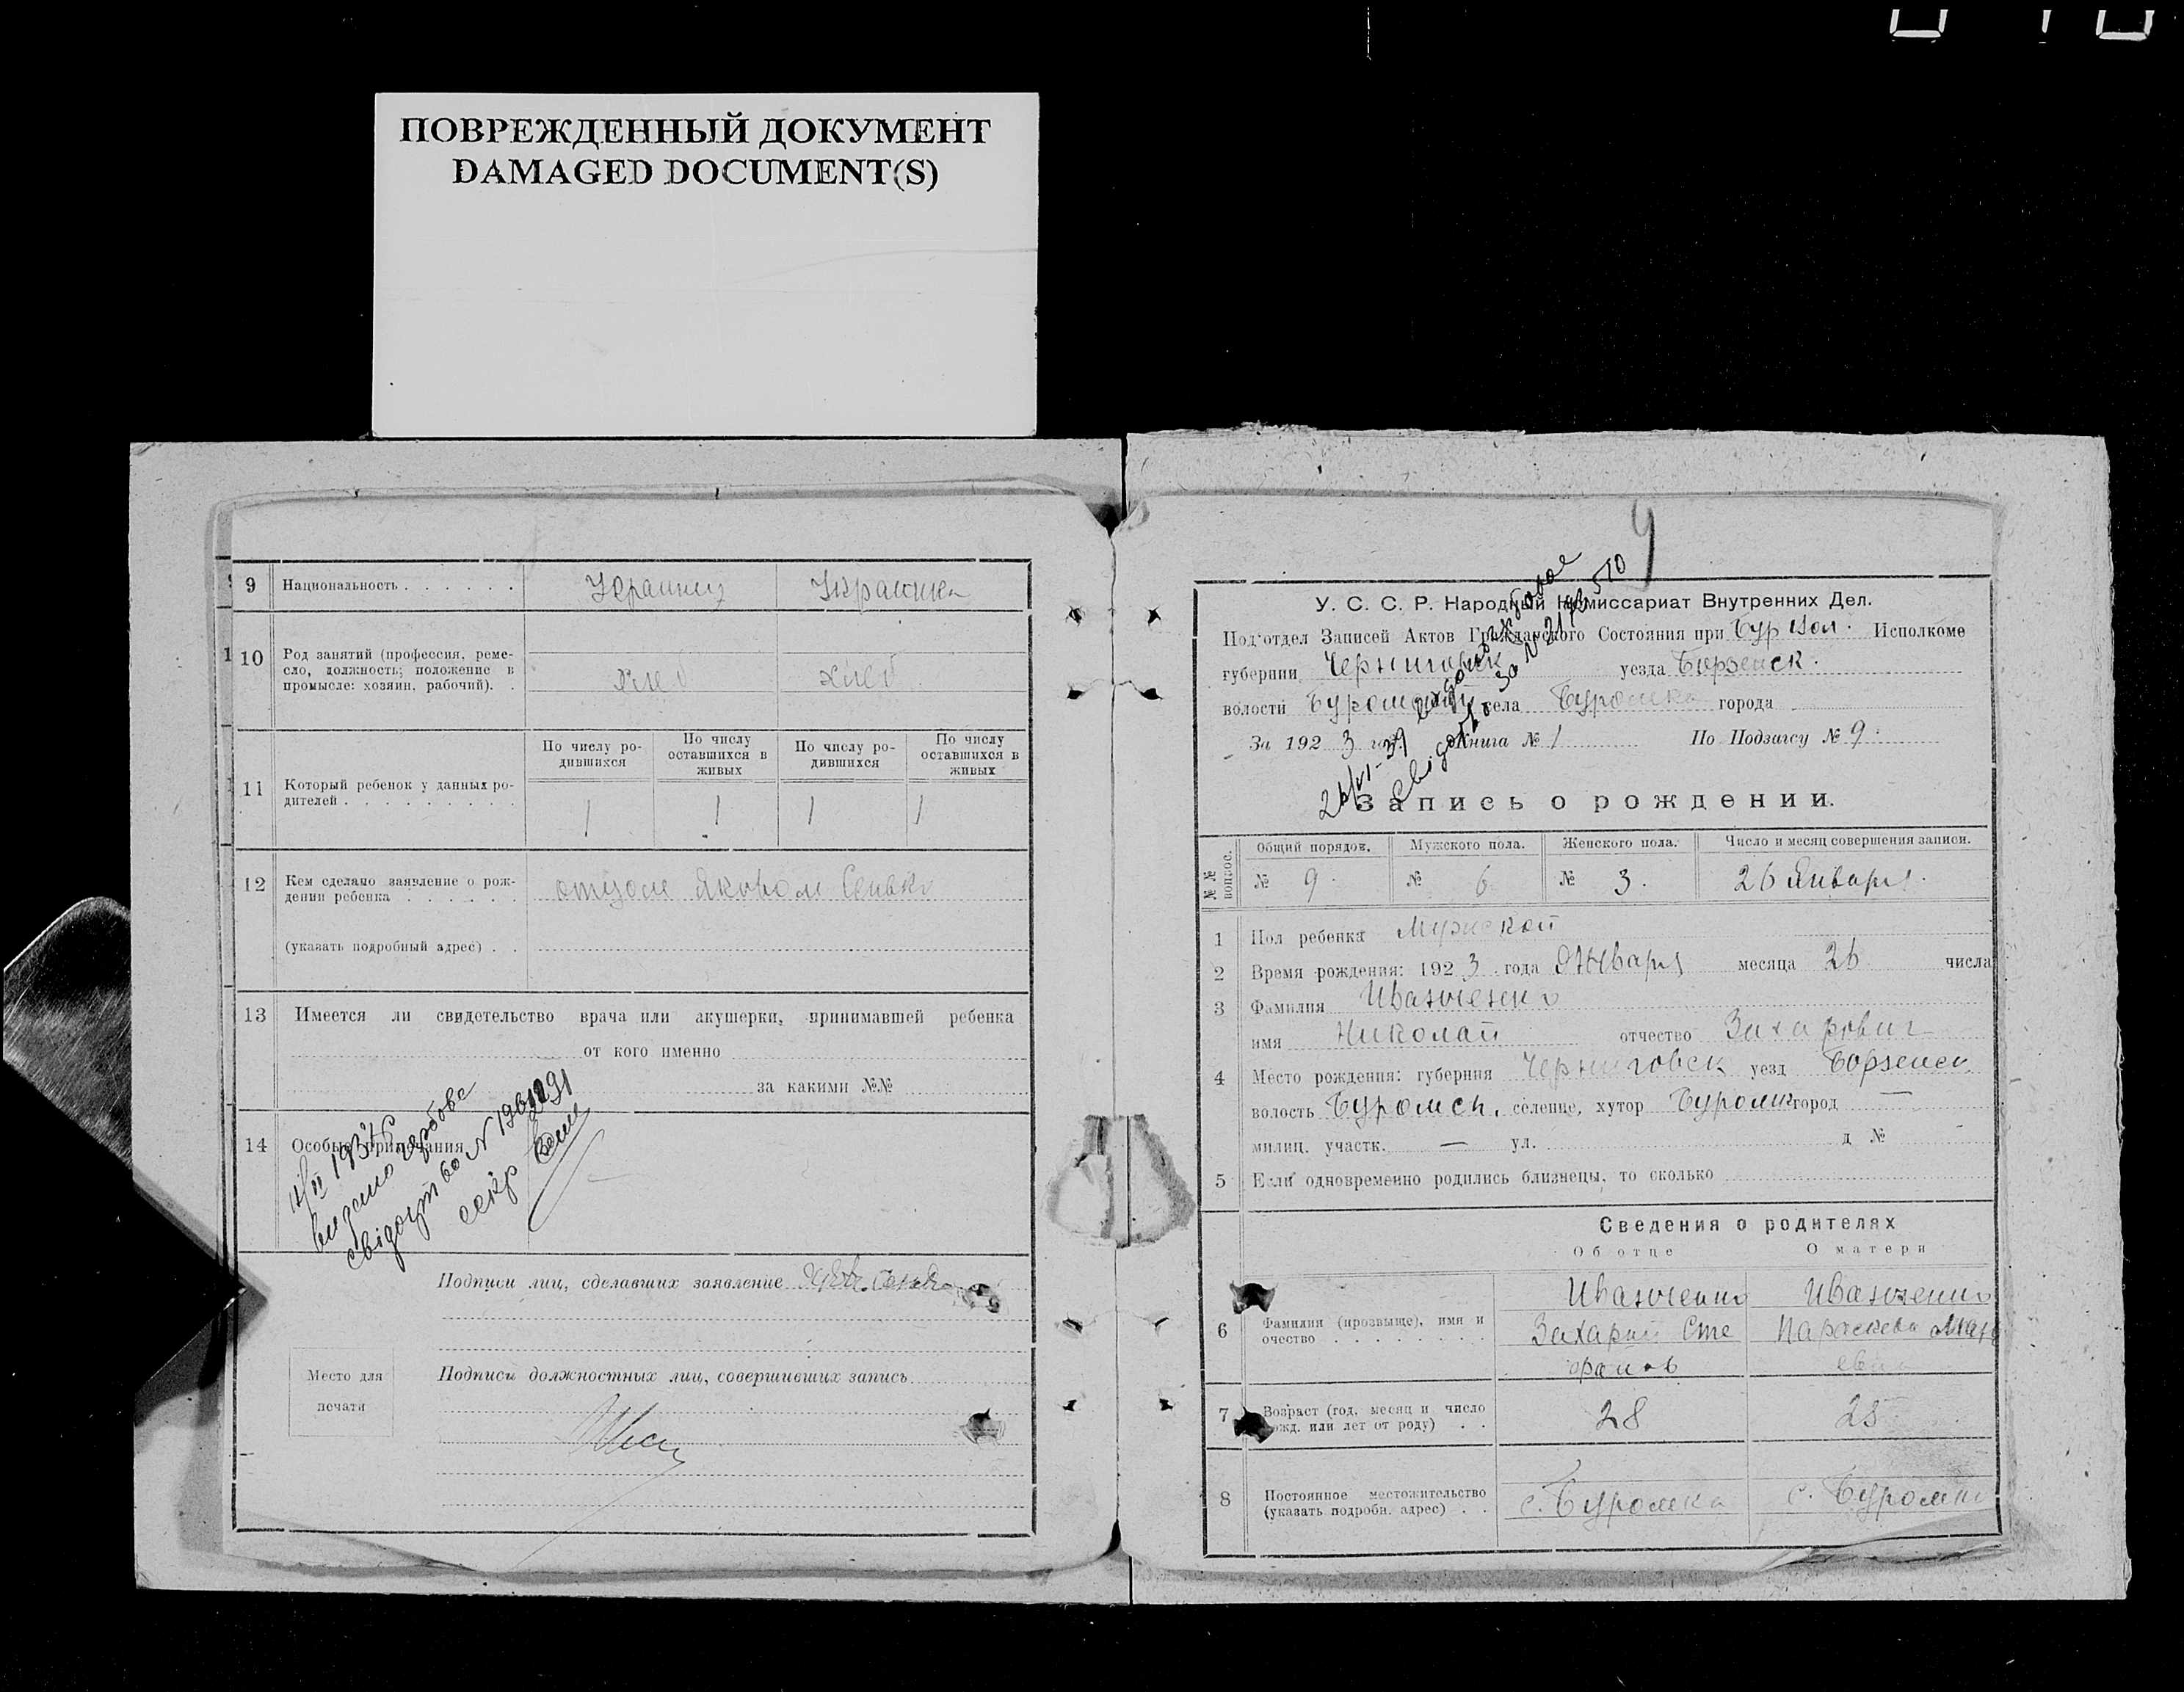 ПОВРЕЖДЕННЫЙ ДОКУМЕНТ
DAMAGED DOCUMENT(S)
9 Национальность . . . . . . Украинец Украинка
10 Род занятий (профессия, ремесло, должность; положение в промысле: хозяин, рабочий). . хлеб хлеб
11 Который ребенок у данных родителей . . . . . . . . .
По числу родившихся По числу оставшихся в живых По числу родившихся По числу оставшихся в живых
1 1 1 1
12 Кем сделано заявление о рождении ребенка . . . . . . отцом Яковом Сенько
(указать подробный адрес) . .
13 Имеется ли свидетельство врача или акушерки, принимавшей ребенка
от кого именно
за какими №№
14 Особые примечания
11/II 1934 р
видано
свідоцтво N
секр
Подписи лиц, сделавших заявление
Место для печати
Подписи должностных лиц, совершивших запись
9
У. С. С. Р. Народный Комиссариат Внутренних Дел.
Под'отдел Записей Актов Гражданского Состояния при Бур Вол. Исполкоме
губернии Черниговск уезда Борзенск.
волости села Буромка города
За 1923 год. Книга № 1 По Подзагсу № 9.
26/VI-39
за N
Запись о рождении.
№№ вопрос. Общий порядок. Мужского пола. Женского пола. Число и месяц совершения записи.
№ 9. № 6 № 3. 26 Января.
1 Пол ребенка Мужской
2 Время рождения: 1923 года Января месяца 26 числа
3 Фамилия Иванченко
имя Николай отчество Захарович
4 Место рождения: губерния Черниговск уезд Борзенск
волость Буромск. селение, хутор Буромка город —
милиц. участк. — ул. д №
5 Если одновременно родились близнецы, то сколько
Сведения о родителях
Об отце О матери
6 Фамилия (прозвыще), имя и очество . . . . . . . .
Иванченко Иванченко
Захарий Сте Параскева
фанов
7 Возраст (год, месяц и число рожд. или лет от роду) . . 28 25
8 Постоянное местожительство (указать подробн. адрес) . . с. Буромка с. Буромка